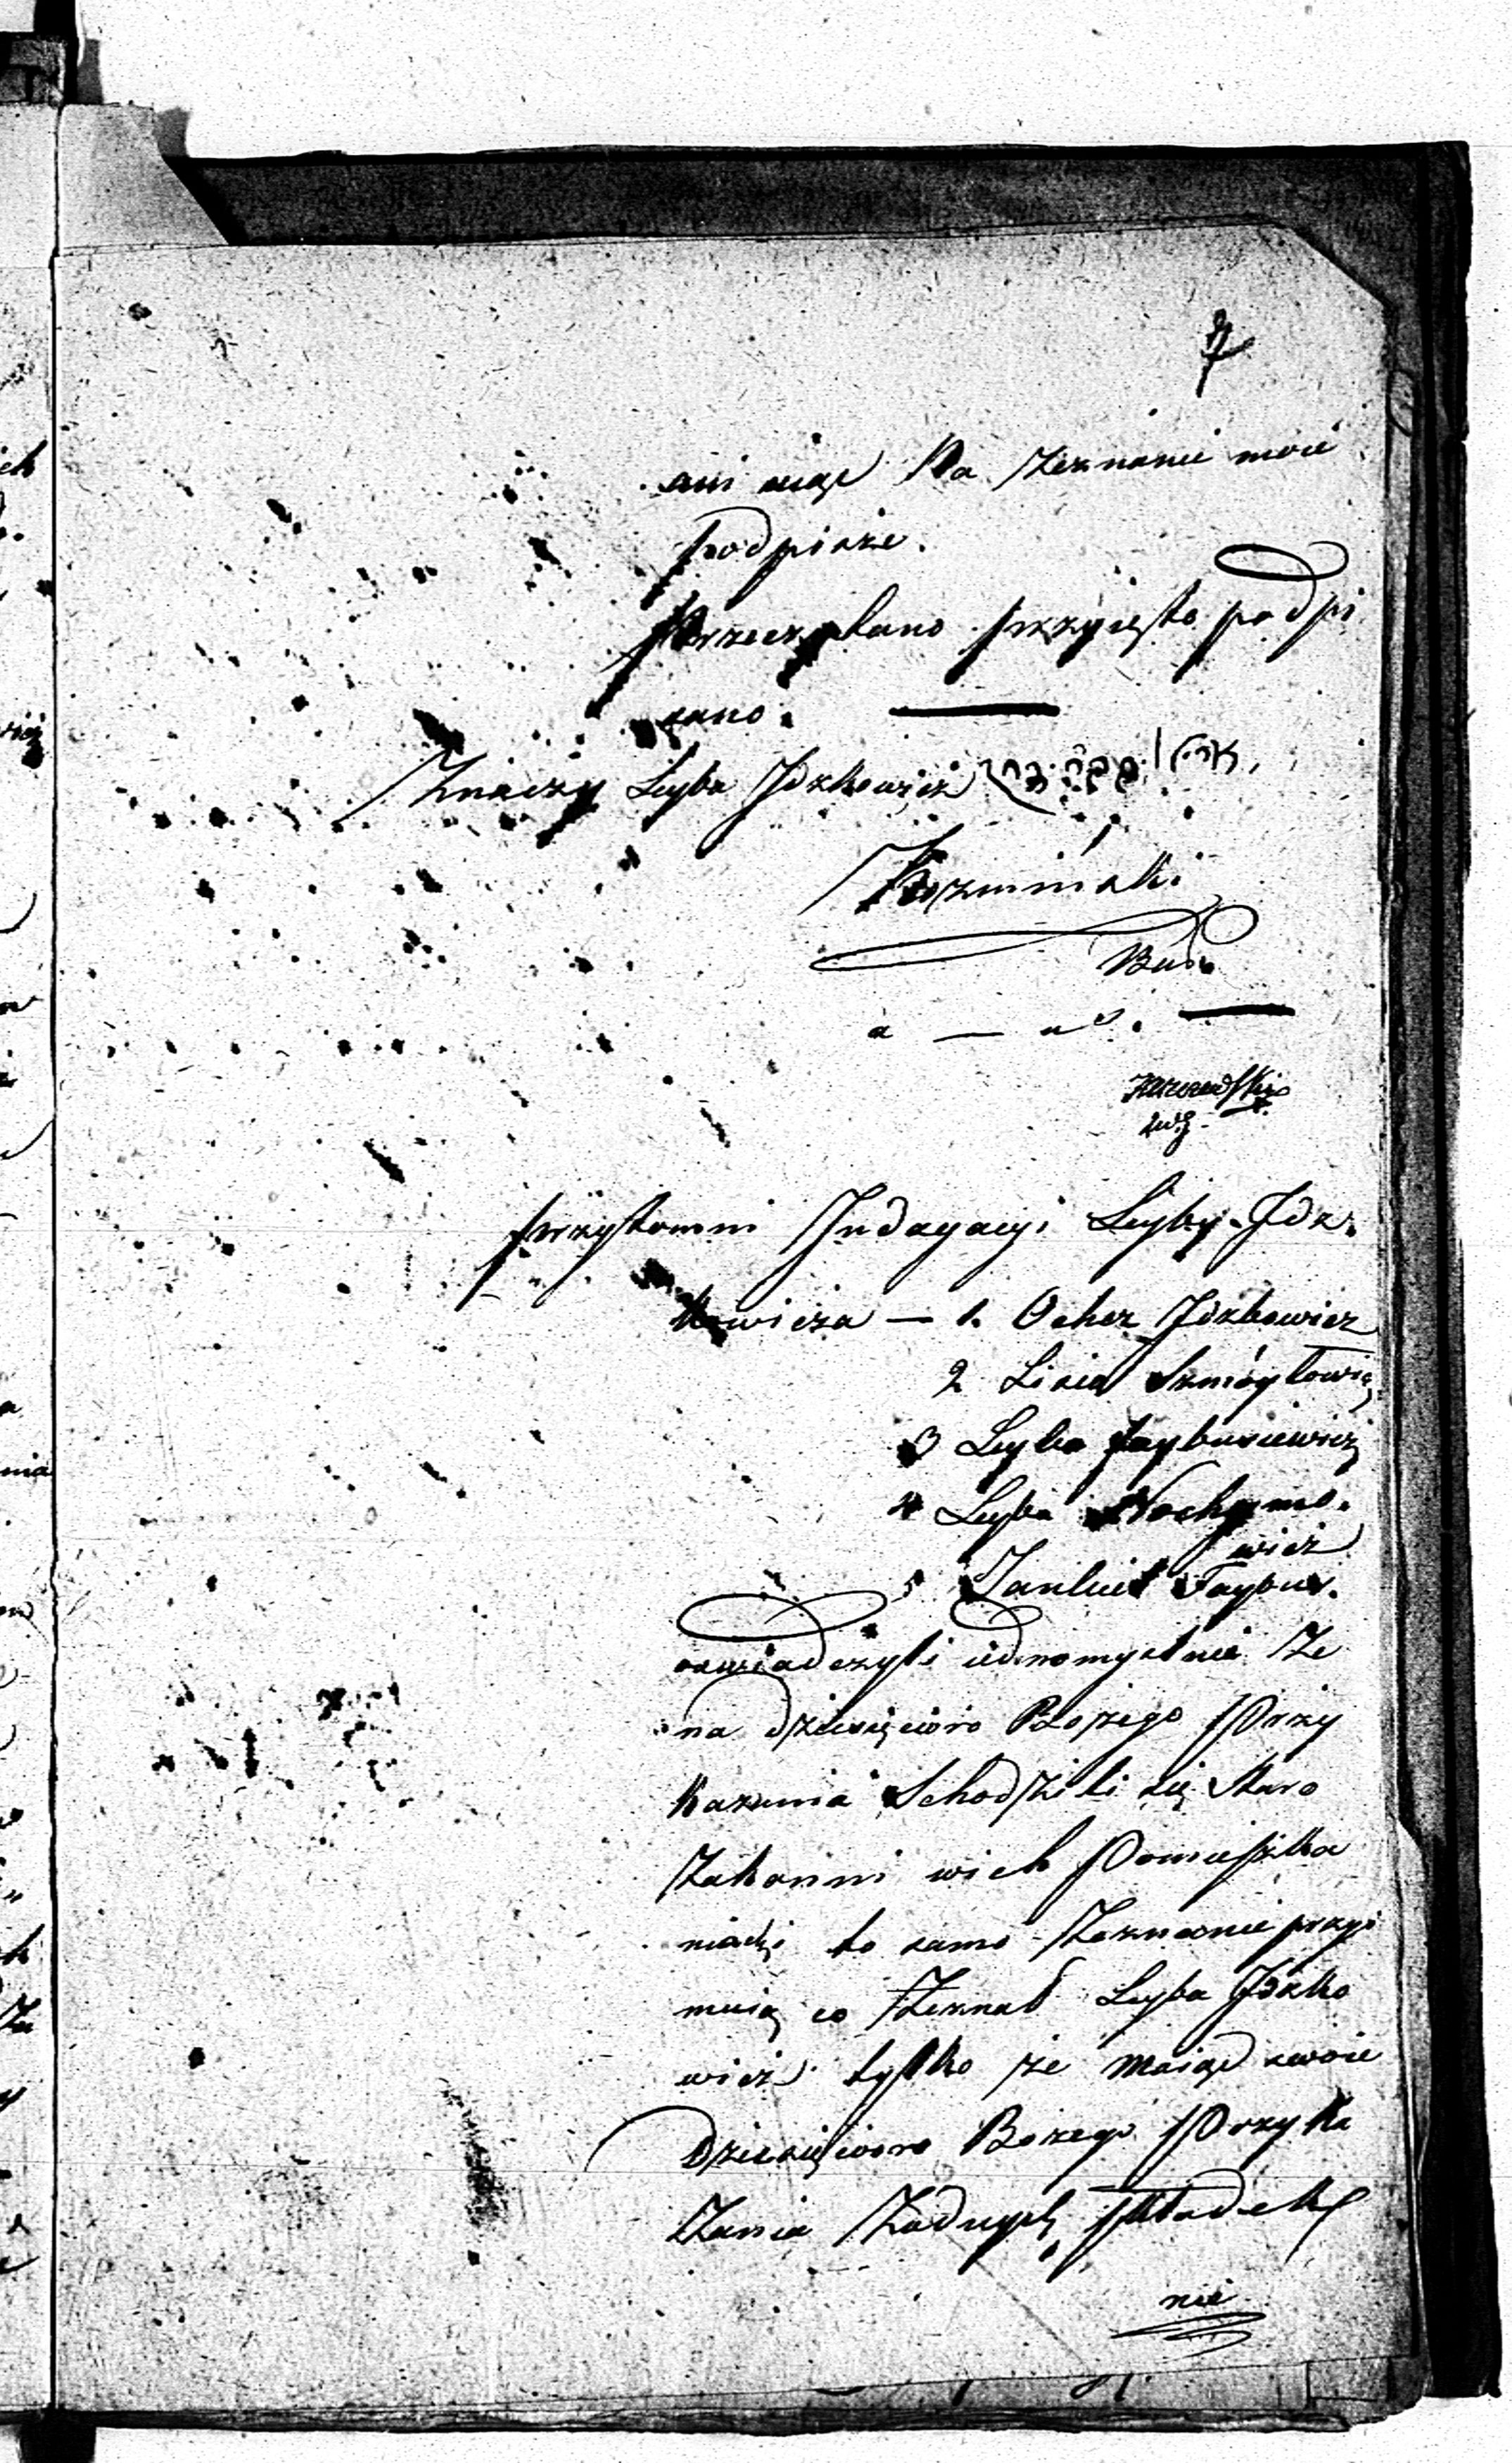 7
Zeznanie moie
podpisze.
Przeczytano przyięto podpi
sano.
Znaczy Leyba Jckowicz
Kozminski
Bud
a — us.
przytomni Indagacyi Leyby Jck
kowicza — 1. Ocher Jckowicz
2 Szmóylowicz
3 Leyba Faybusiewicz
4 Leyba Nochymo-
wicz
5 Jankiel Faybus.
oswiadczyli iednomyslnie że
na dziesięcioro Bożego Przy
kazania Schodzili się Staro
Zakonni w ich Pomieszka
niach to samo Zeznanie przyi
muią co Zeznał Leyba Jcko
wicz tylko że maiąc swoie
Dziesięcioro Bożego Przyka
Zania Żadnych Składek
nie